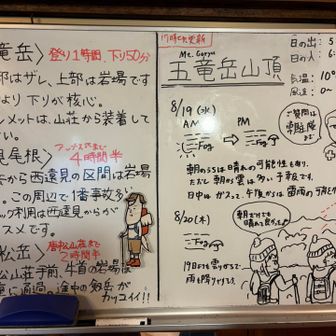 竜岳〉登り1時間、下り50分
部はザレ、上部は岩場です
より下りが核心。
ルメットは、山荘から装着して
さい。
見尾根〉
4時間半
から西遠見の区間は岩場
。この辺で1番事故多い
ック利用は西遠見からが
スメです。
松岳〉唐松山荘まで
2時間半
山荘手前、牛首の岩場は
に通過。途中の
カッコイイ!!
17時に更新
Mt. Goryu
五竜岳山頂
8/19(水)
AM
PM
Fog
Fog
朝のうちは晴れの可能性も有り。
ただし朝から雲は多い予報です。
日中はガスって、午後からは雷雨の可能
8/20(木)
Fog
19日よりも雲りがちで
雨も降りやすそう。
日の出:5
日の入:6
気温:10°
ご質問は